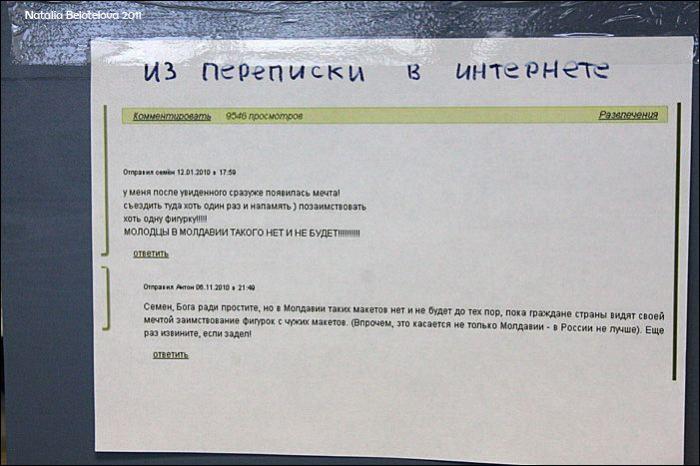 Natalia Belotelova 2011
из переписки в интернете
Комментировать 9546 просмотров Развлечения
Отправил семён 12.01.2010 в 17:59
у меня после увиденного сразуже появилась мечта!
съездить туда хоть один раз и напамять ) позаимствовать
хоть одну фигурку!!!!!
МОЛОДЦЫ В МОЛДАВИИ ТАКОГО НЕТ И НЕ БУДЕТ!!!!!!!!!!!
ответить
Отправил Антон 06.11.2010 в 21:49
Семен, Бога ради простите, но в Молдавии таких макетов нет и не будет до тех пор, пока граждане страны видят своей
мечтой заимствование фигурок с чужих макетов. (Впрочем, это касается не только Молдавии - в России не лучше). Еще
раз извините, если задел!
ответить